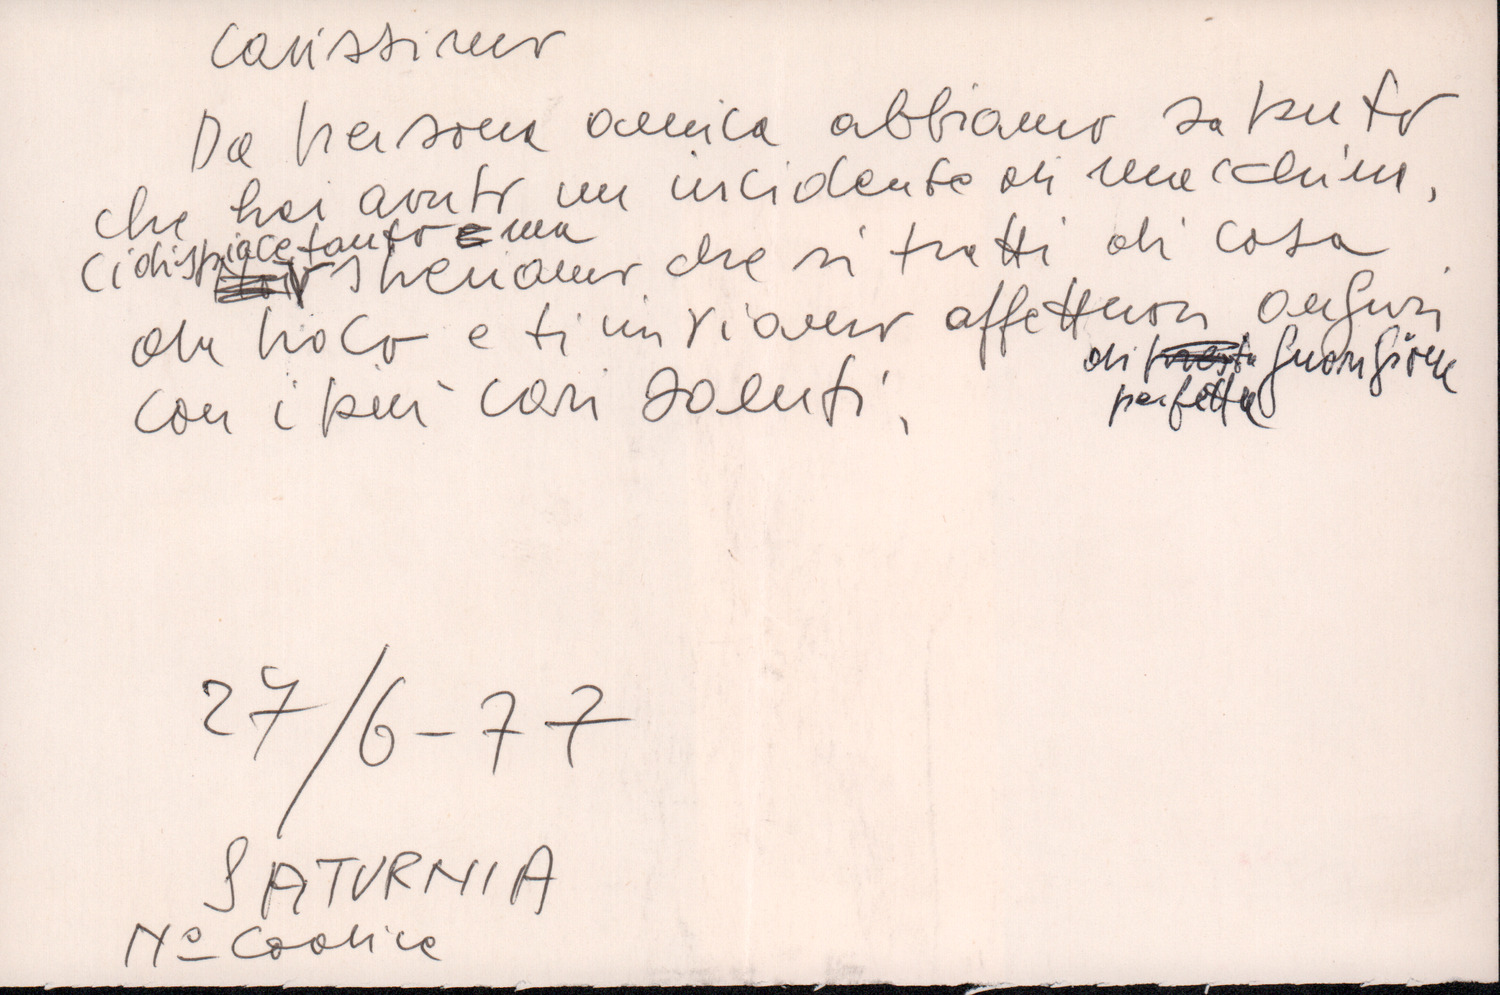 Carissimo
Da persona amica abbiamo saputo
che hai avuto un incidente di macchina,
Ci dispiace tanto ma
speriamo che si tratti di cosa
da poco e ti inviamo affettuosi auguri
di guarigione
perfetta
con i più cari saluti,
27/6-77
SATURNIA
Nº Codice